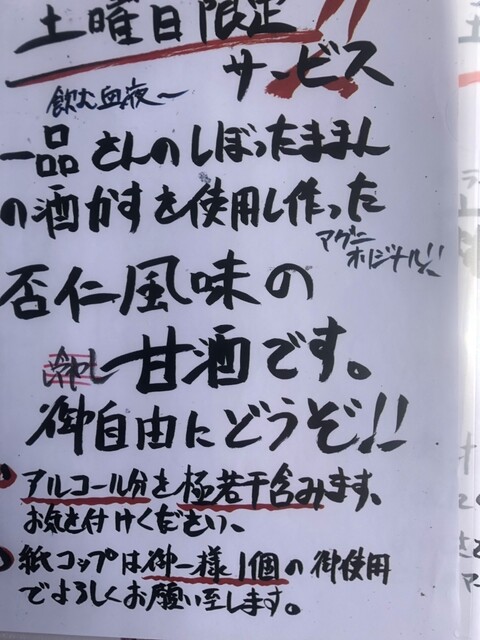 土曜日限定!!
サービス
飲む血液〜
一品さんのしぼったままん
の酒かすを使用し作った
マグニ
オリジナル!!
否仁風味の
冷やし甘酒です。
御自由にどうぞ!!
アルコール分を極若干含みます、
お気を付けください、
紙コップは御一様1個の御使用
でよろしくお願い至します。